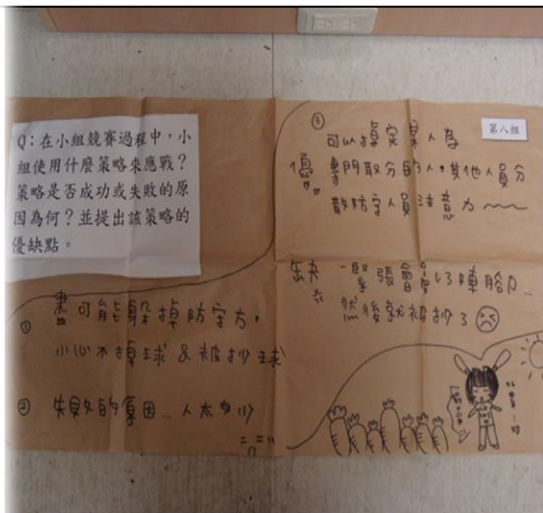 Q：在小組競賽過程中，小
組使用什麼策略來應戰？
策略是否成功或失敗的原
因為何？並提出該策略的
優缺點。
① 盡可能躲掉防守方，
小心不掉球 & 被抄球
② 失敗的原因… 人太少
第八組
③
可以指定某人為
優： 專門取分的人，其他人員分
散防守人員注意力～～
缺： 一緊張會亂了陣腳…
然後就被抄了